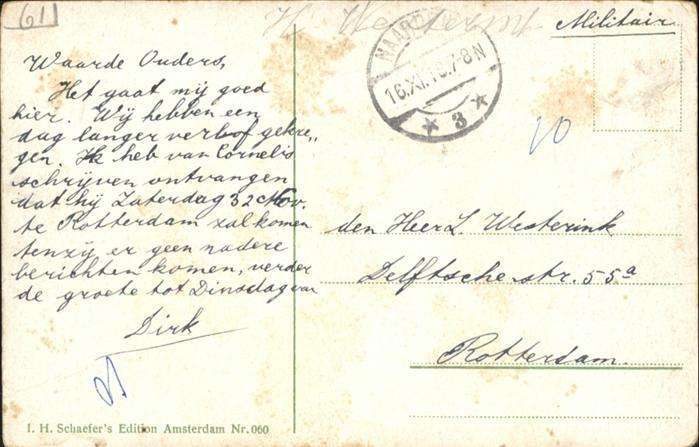 61
Militair
NAARD
16.XI. 7-8N
3
Waarde Ouders,
Het gaat mij goed
hier. Wij hebben een
dag langer verlof gekre„
gen. Ik heb van Cornelis
schrijven ontvangen
dat hij Zaterdag Nov.
te Rotterdam zal komen
tenzij er geen nadere
berichten komen, verder
de groete tot Dinsdag van
Dirk
den Heer L. Westerink
Delftsche str. 55a
Rotterdam.
I. H. Schaefer's Edition Amsterdam Nr. 060